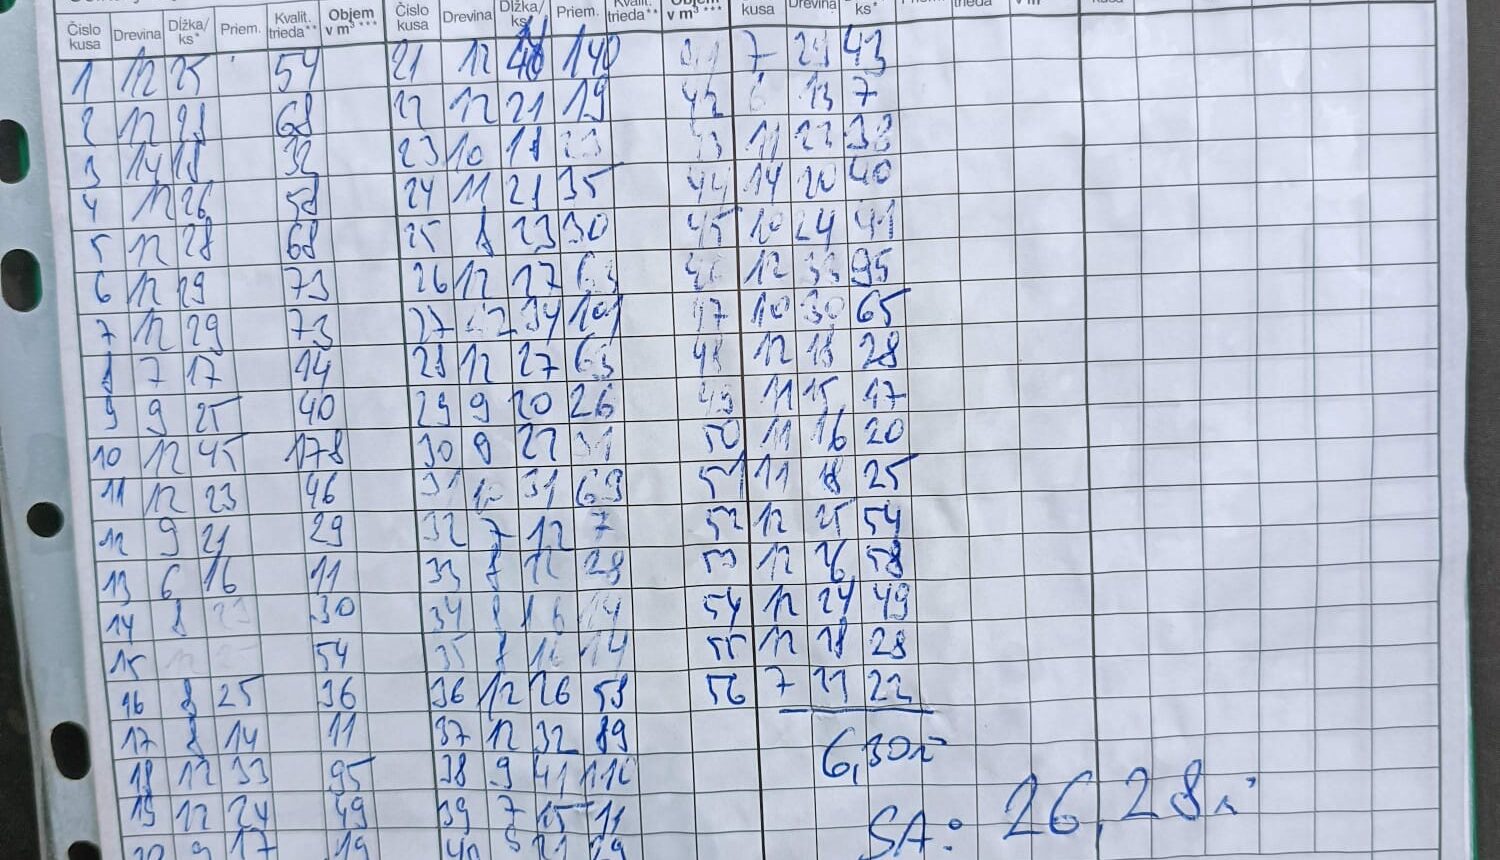 Číslo kusa Drevina Dĺžka/ks* Priem. Kvalit. trieda** Objem v m³ *** Číslo kusa Drevina Dĺžka/ks* Priem. Kvalit. trieda** Objem v m³ *** kusa Drevina ks*
1 12 25 54 21 12 140 7 43
2 12 28 68 22 12 21 19 42 13 7
3 14 18 32 23 10 18 23 43 11 22 38
4 12 26 58 24 11 21 35 44 14 20 40
5 12 28 68 25 8 23 30 45 10 24 41
6 12 29 73 26 12 27 63 12 33 95
7 12 29 73 27 12 34 101 47 10 30 65
8 7 17 14 28 12 27 63 48 12 18 28
9 9 25 40 29 9 20 26 49 11 15 17
10 12 45 178 30 9 22 31 50 11 16 20
11 12 23 46 31 31 69 51 11 18 25
12 9 21 29 32 7 12 7 52 12 25 54
13 6 16 11 33 8 28 53 12 26 58
14 8 23 30 34 8 16 14 54 12 24 49
15 12 25 54 35 8 16 14 55 12 18 28
16 8 25 36 36 12 26 58 56 7 22
17 8 14 11 37 12 32 89
6,30
18 12 33 95 38 9 41 110
19 12 24 49 39 7 15 11
SA: 26,28
20 9 17 19 40 21